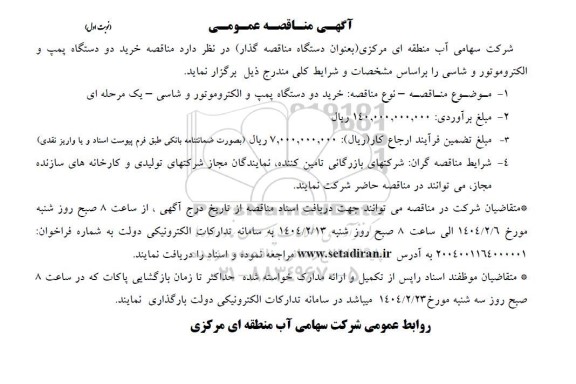 آگهـی منــاقصــه عمــومــی
(نوبت اول)
شرکت سهامی آب منطقه ای مرکزی(بعنوان دستگاه مناقصه گذار) در نظر دارد مناقصه خرید دو دستگاه پمپ و
الکتروموتور و شاسی را براساس مشخصات و شرایط کلی مندرج ذیل برگزار نماید.
۱- مـوضـوع منـاقصـه – نوع مناقصه: خرید دو دستگاه پمپ و الکتروموتور و شاسی – یک مرحله ای
۲- مبلغ برآوردی: ۱۴۰,۰۰۰,۰۰۰,۰۰۰ ریال
۳- مبلغ تضمین فرآیند ارجاع کار(ریال): ۷,۰۰۰,۰۰۰,۰۰۰ ریال (بصورت ضمانتنامه بانکی طبق فرم پیوست اسناد و یا واریز نقدی)
۴- شرایط مناقصه گران: شرکتهای بازرگانی تامین کننده، نمایندگان مجاز شرکتهای تولیدی و کارخانه های سازنده
مجاز، می توانند در مناقصه حاضر شرکت نمایند.
*متقاضیان شرکت در مناقصه می توانند جهت دریافت اسناد مناقصه از تاریخ درج آگهی ، از ساعت ۸ صبح روز شنبه
مورخ ۱۴۰۴/۲/۶ الی ساعت ۸ صبح روز شنبه ۱۴۰۴/۲/۱۳ به سامانه تدارکات الکترونیکی دولت به شماره فراخوان:
۲۰۰۴۰۰۱۱۶۴۰۰۰۰۰۱ به آدرس www.setadiran.ir مراجعه نموده و اسناد را دریافت نمایند.
* متقاضیان موظفند اسناد راپس از تکمیل و ارائه مدارک خواسته شده حداکثر تا زمان بازگشایی پاکات که در ساعت ۸
صبح روز سه شنبه مورخ ۱۴۰۴/۲/۲۳ میباشد در سامانه تدارکات الکترونیکی دولت بارگذاری نمایند.
روابط عمومی شرکت سهامی آب منطقه ای مرکزی